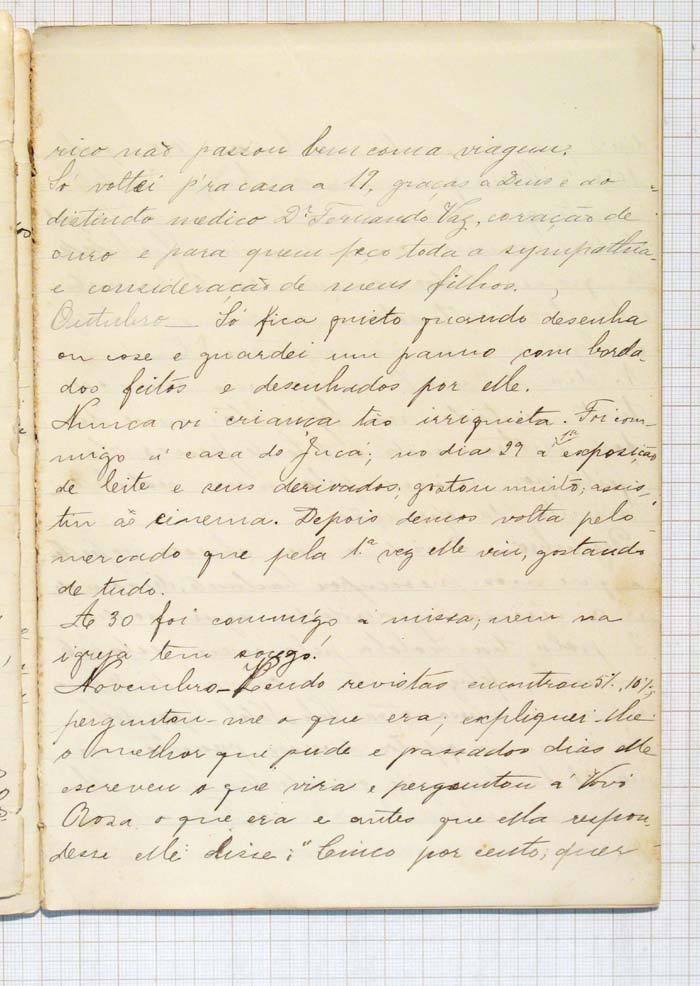 rico não passou bem com a viagem.
Só voltei p'ra casa a 17, graças a Deus e ao
distincto medico Dr. Fernando Vaz, coração de
ouro e para quem peço toda a sympathia
e consideração de meus filhos.
Outubro — Só fica quieto quando desenha
ou cose e guardei um panno com borda-
dos feitos e desenhados por elle.
Nunca vi criança tão irriquieta. Foi com-
migo á casa do Jucá; no dia 29 á exposição
de leite e seus derivados, gostou muito; assis-
tiu ao cinema. Depois demos volta pelo
mercado que pela 1.ª vez elle viu, gostando
de tudo.
A 30 foi commigo á missa; nem na
igreja tem socego!
Novembro — Lendo revistas encontrou 5%, 10%,
perguntou-me o que era; expliquei-lhe
o melhor que pude e passados dias elle
escreveu o que vira e perguntou á Vovó
Rosa o que era e antes que ella respon-
desse elle disse: "Cinco por cento, quer